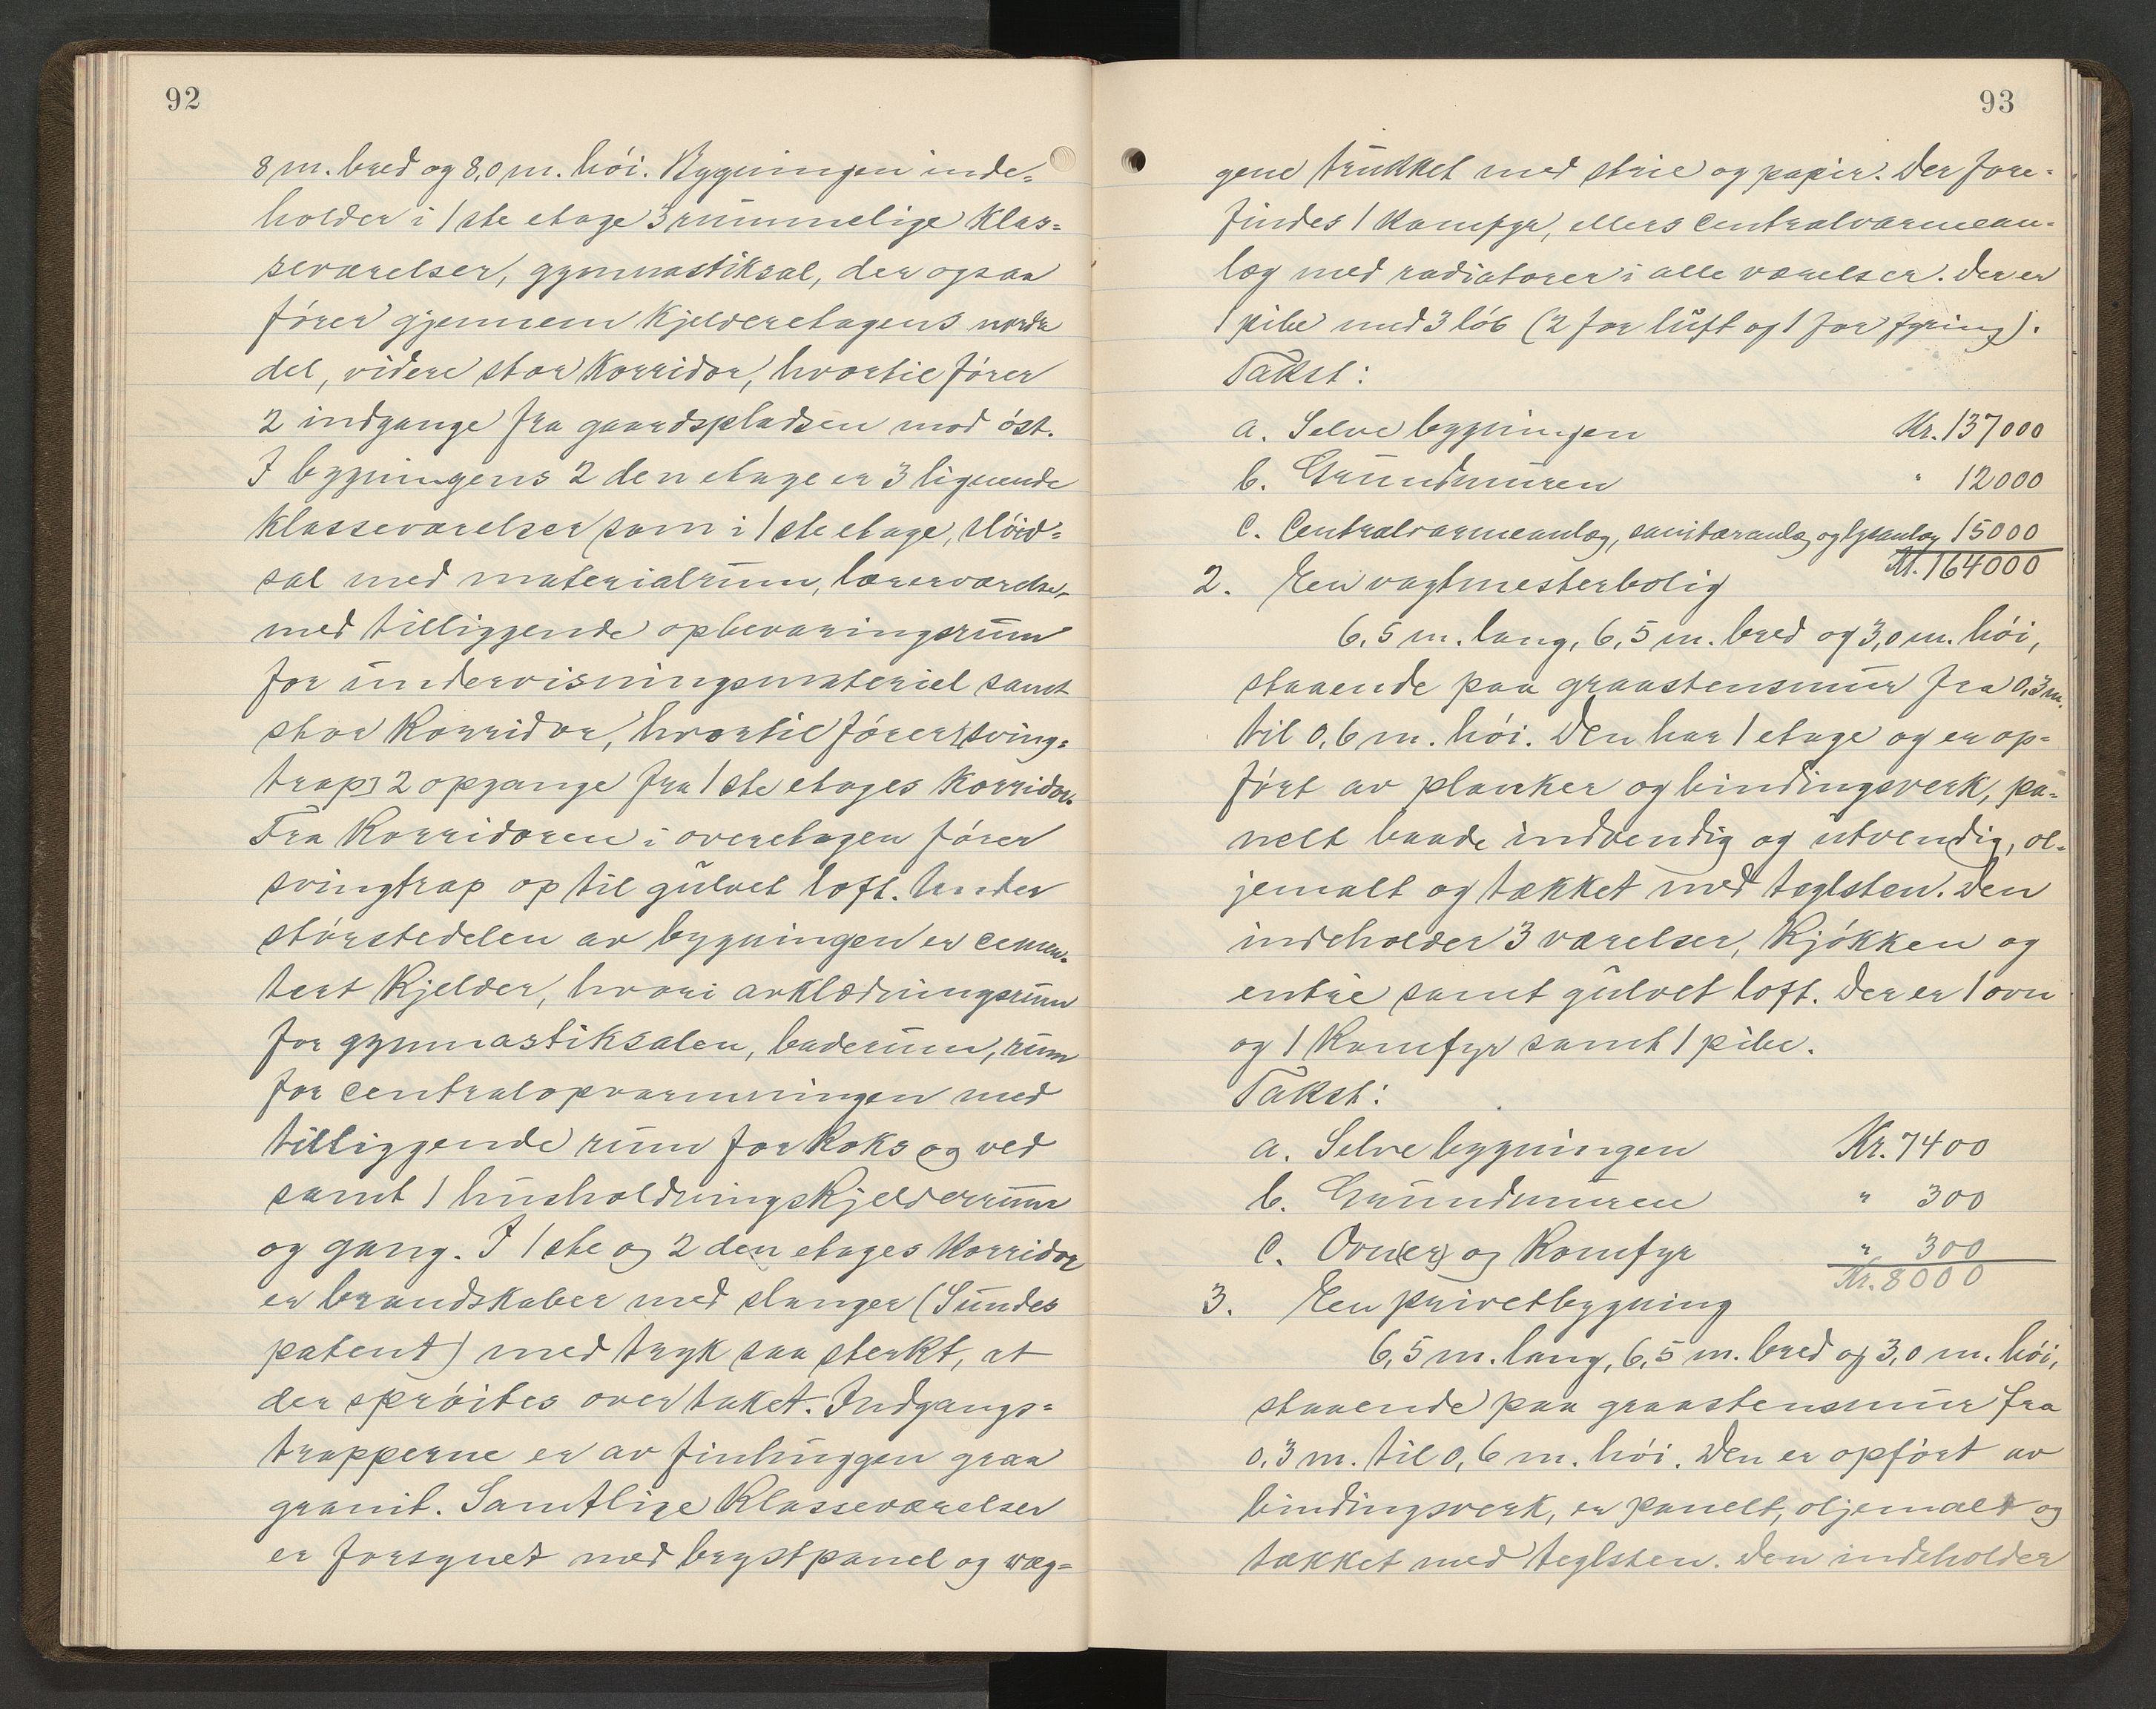 92
8 m. bred og 8,0 m. höi. Bygningen inde-
holder i 1ste etage 3 rummelige klas-
seværelser, gymnastiksal, der ogsaa
fører gjennem kjelderetagens nordre
del, videre stor korridor, hvortil fører
2 indgange fra gaardspladsen mod öst.
I bygningens 2den etage er 3 lignende
klasseværelser som i 1ste etage, slöid-
sal med materialrum, lærerværelse,
med tilliggende opbevaringsrum
for undervisningsmateriel samt
stor korridor, hvortil fører (sving-
trap) 2 opgange fra 1ste etages korridor.
Fra korridoren i overetagen fører
svingtrap op til gulvet loft. Under
størstedelen av bygningen er cemen-
tert kjelder, hvori avklædningsrum
for gymnastiksalen, baderum, rum
for centralopvarmningen med
tilliggende rum for koks og ved
samt 1 husholdningskjelderrum
og gang. I 1ste og 2den etages korridor
er brandskaber med slanger (Sundes
patent) med tryk saa sterkt, at
der spröites over taket. Indgangs-
trapperne er av finhuggen graa
granit. Samtlige klasseværelser
er forsynet med brystpanel og væg-
93
gene trukket med strie og papir. Der fore-
findes 1 komfyr, ellers centralvarmean-
læg med radiatorer i alle værelser. Der er
1 pibe med 3 löb (2 for luft og 1 for fyring).
Takst:
a. Selve bygningen Kr. 137000
b. Grundmuren " 12000
c. Centralvarmeanlæg, sanitæranlæg og lysanlæg 15000
Kr. 164000
2. En vagtmesterbolig
6,5 m. lang, 6,5 m. bred og 3,0 m. höi,
staaende paa graastensmur fra 0,3 m.
til 0,6 m. höi. Den har 1 etage og er op-
ført av planker og bindingsverk, pa-
nelt baade indvendig og utvendig, ol-
jemalt og tækket med teglsten. Den
indeholder 3 værelser, kjökken og
entré samt gulvet loft. Der er 1 ovn
og 1 komfyr samt 1 pibe.
Takst:
a. Selve bygningen Kr. 7400
b. Grundmuren " 300
c. Ovn(er) og komfyr " 300
Kr. 8000
3. En privetbygning
6,5 m. lang, 6,5 m. bred og 3,0 m. höi,
staaende paa graastensmur fra
0,3 m. til 0,6 m. höi. Den er opført av
bindingsverk, er panelt, oljemalt og
tækket med teglsten. Den indeholder